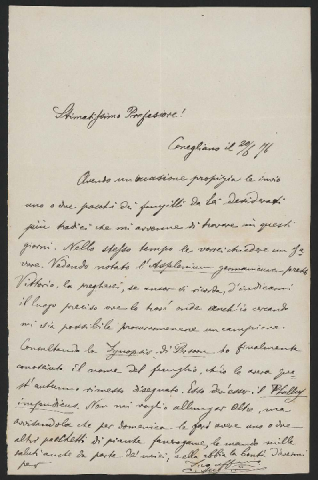 Stimatissimo Professore!
Conegliano il 20/5 76
Avendo un'occasione propizia le invio
uno o due pacchi dei funghilli da Lei desiderati
più radici che mi avvenne di trovare in questi
giorni. Nello stesso tempo le verrei chiedere un fa-
vore. Vedendo notato l'Asplenium germanicum presso
Vittorio, la pregherei, se ancor si ricorda, d'indicarmi
il luogo preciso ove lo trovò onde anch'io cercando
mi sia possibile procurarmene un campione.
Consultando la Synopsis di Persoon ho finalmente
conosciuto il nome del fungo, ch'io le aveva
st'autunno rimesso disegnato. Esso dev'esser il Phallus
impudicus. Non mi voglio allungar oltre, ma
avvisandola che per domenica le farò avere uno o due
altri pacchetti di piante fanerogame, le mando mille
saluti anche da parte de' miei, e nella
per